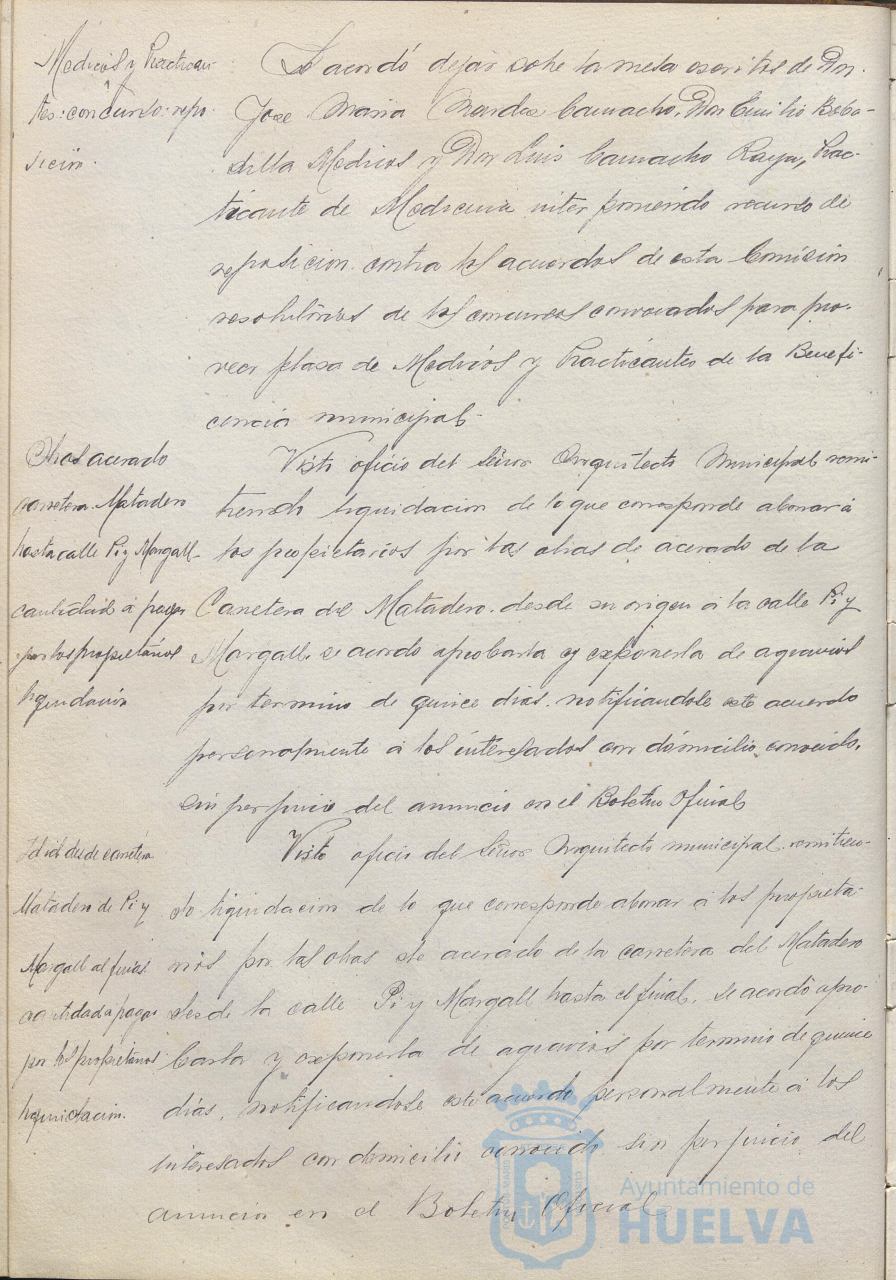 Medicos y Practican-
tes: concurso: repo-
sición.
Se acordó dejar sobre la mesa escritos de Dn.
Jose Maria Camacho, Don Emilio Boba-
dilla Medicos y Don Luis Camacho Raya, Prac-
ticante de Medicina interponiendo recurso de
reposicion contra los acuerdos de esta Comisión
resolutorios de los concursos convocados para pro-
veer plasa de Medicos y Practicantes de la Benefi-
cencia municipal.
Obras acerado
carretera Matadero
hasta calle Pi y Margall
cantidad á pagar
por los propietarios
liquidación
Visto oficio del Señor Arquitecto Municipal remi-
tiendo liquidacion de lo que corresponde abonar á
los propietarios por las obras de acerado de la
Carretera del Matadero desde su origen á la calle Pi y
Margall. se acordo aprobarla y exponerla de agravios
por termino de quince dias. notificandose este acuerdo
personalmente á los interesados con domicilio conocido,
sin perjuicio del anuncio en el Boletin Oficial
Id id desde carretera
Matadero de Pi y
Margall al final
cantidad á pagar
por los propietarios
liquidacion.
Visto oficio del Señor Arquitecto municipal remitien-
do liquidacion de lo que corresponde abonar á los propieta-
rios por las obras de acerado de la carretera del Matadero
desde la calle Pi y Margall hasta el final. se acordó apro-
barla y exponerla de agravios por termino de quince
días, notificandose este acuerdo personalmente á los
interesados con domicilio conocido sin perjuicio del
anuncio en el Boletin Oficial
Ayuntamiento de
HUELVA